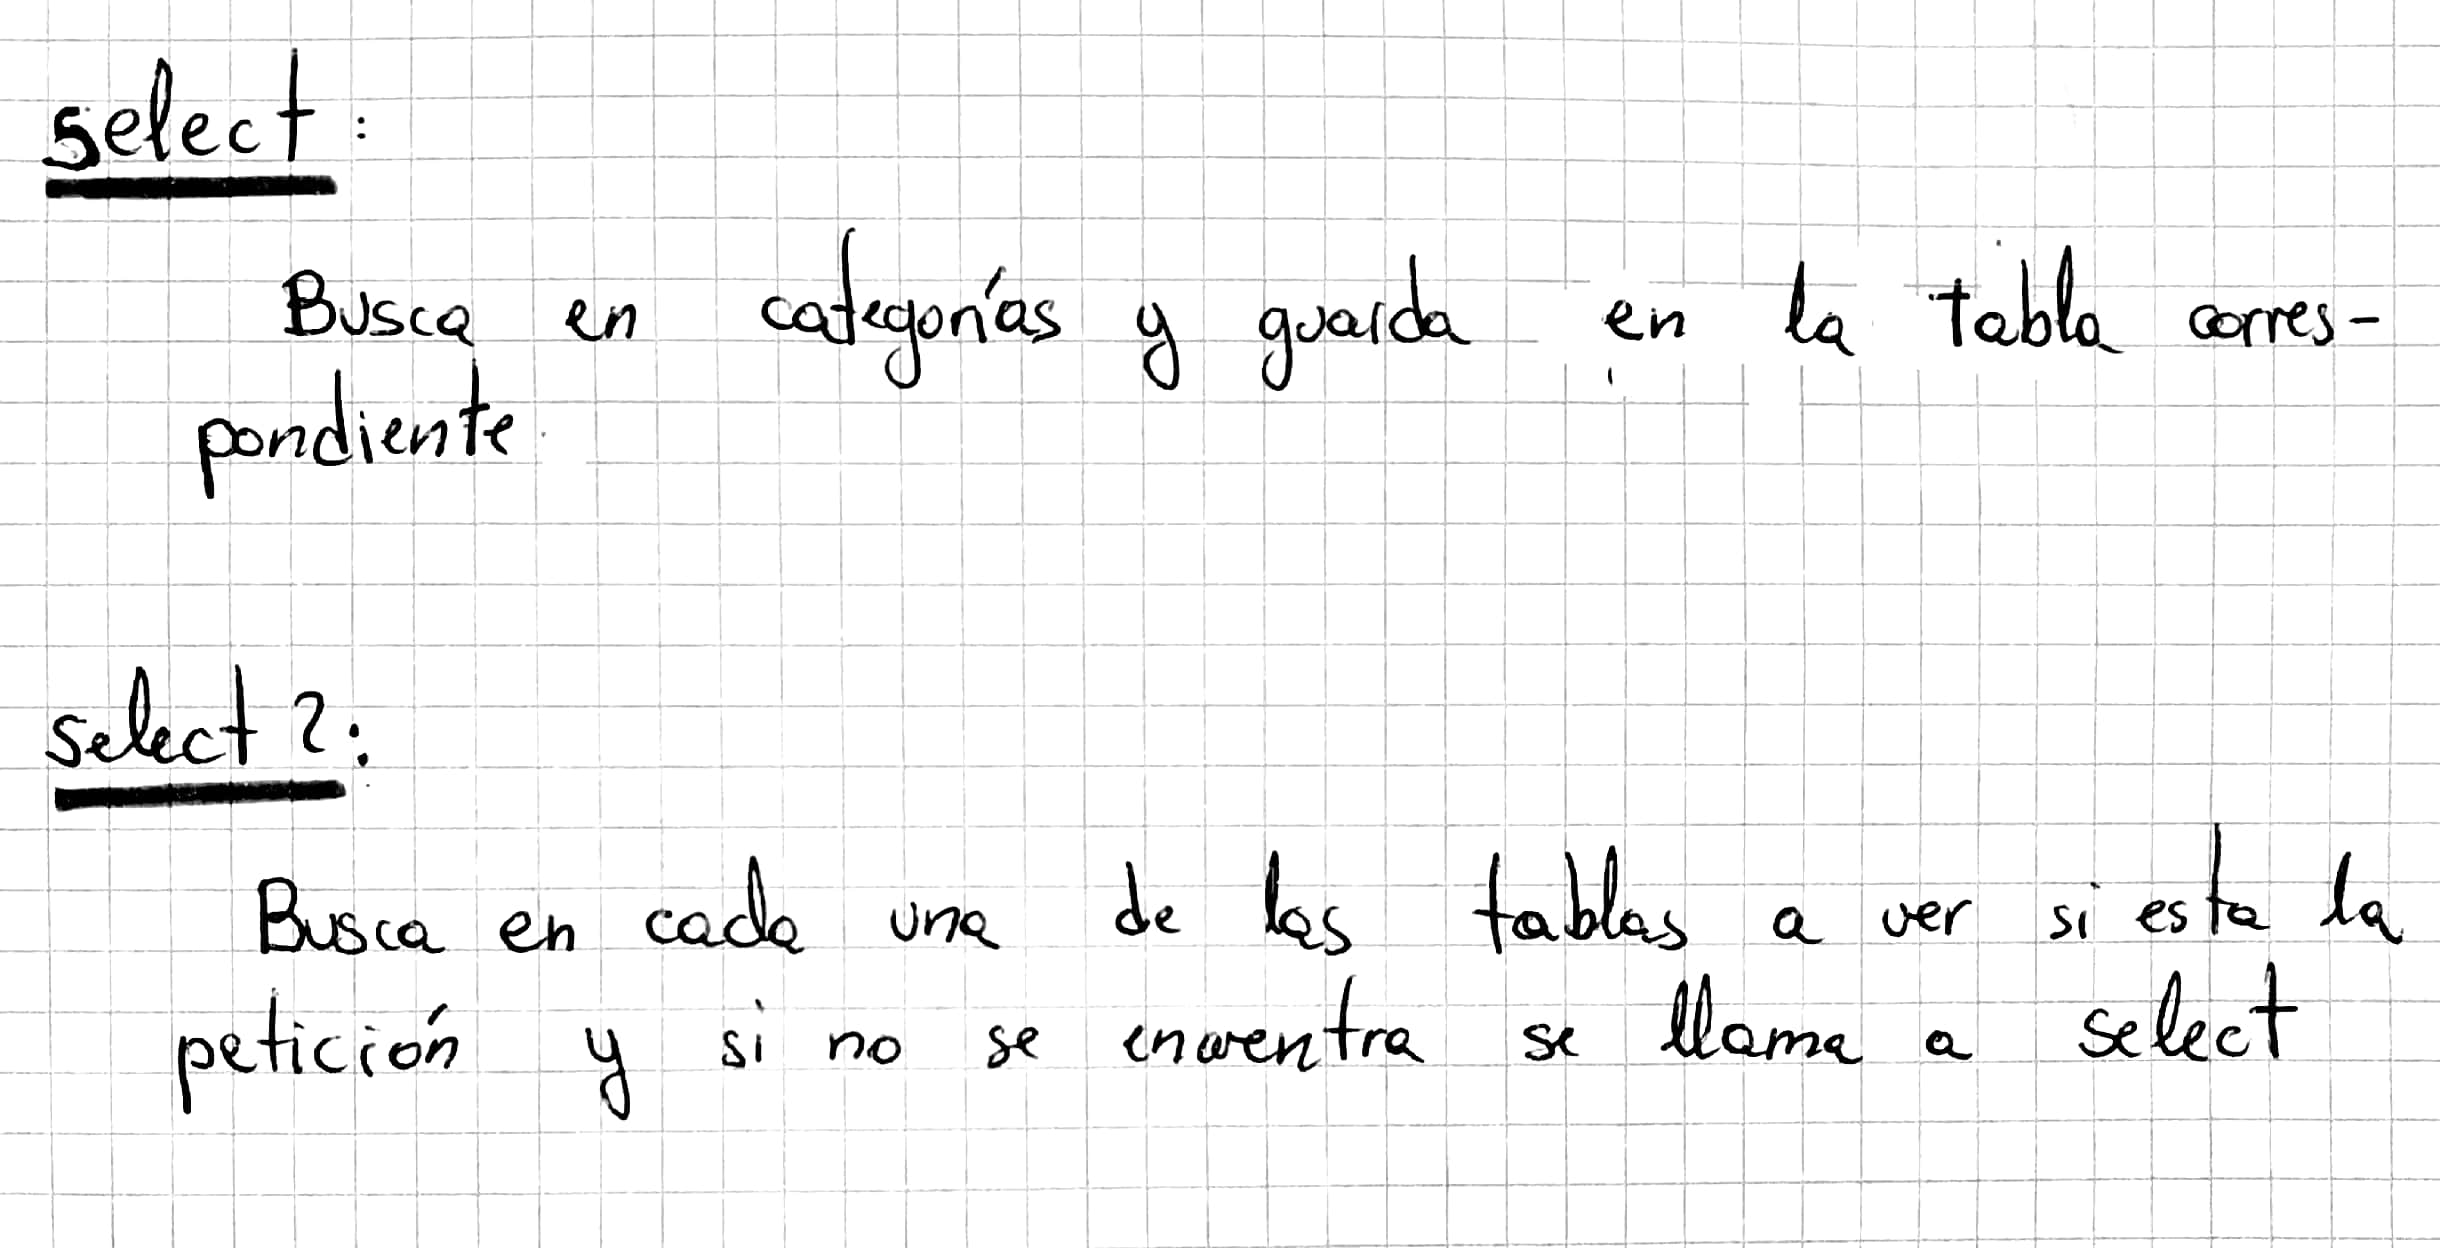 select:
Busca en categorías y guarda en la tabla corres-
pondiente.
select 2:
Busca en cada una de las tablas a ver si esta la
petición y si no se encuentra se llama a select